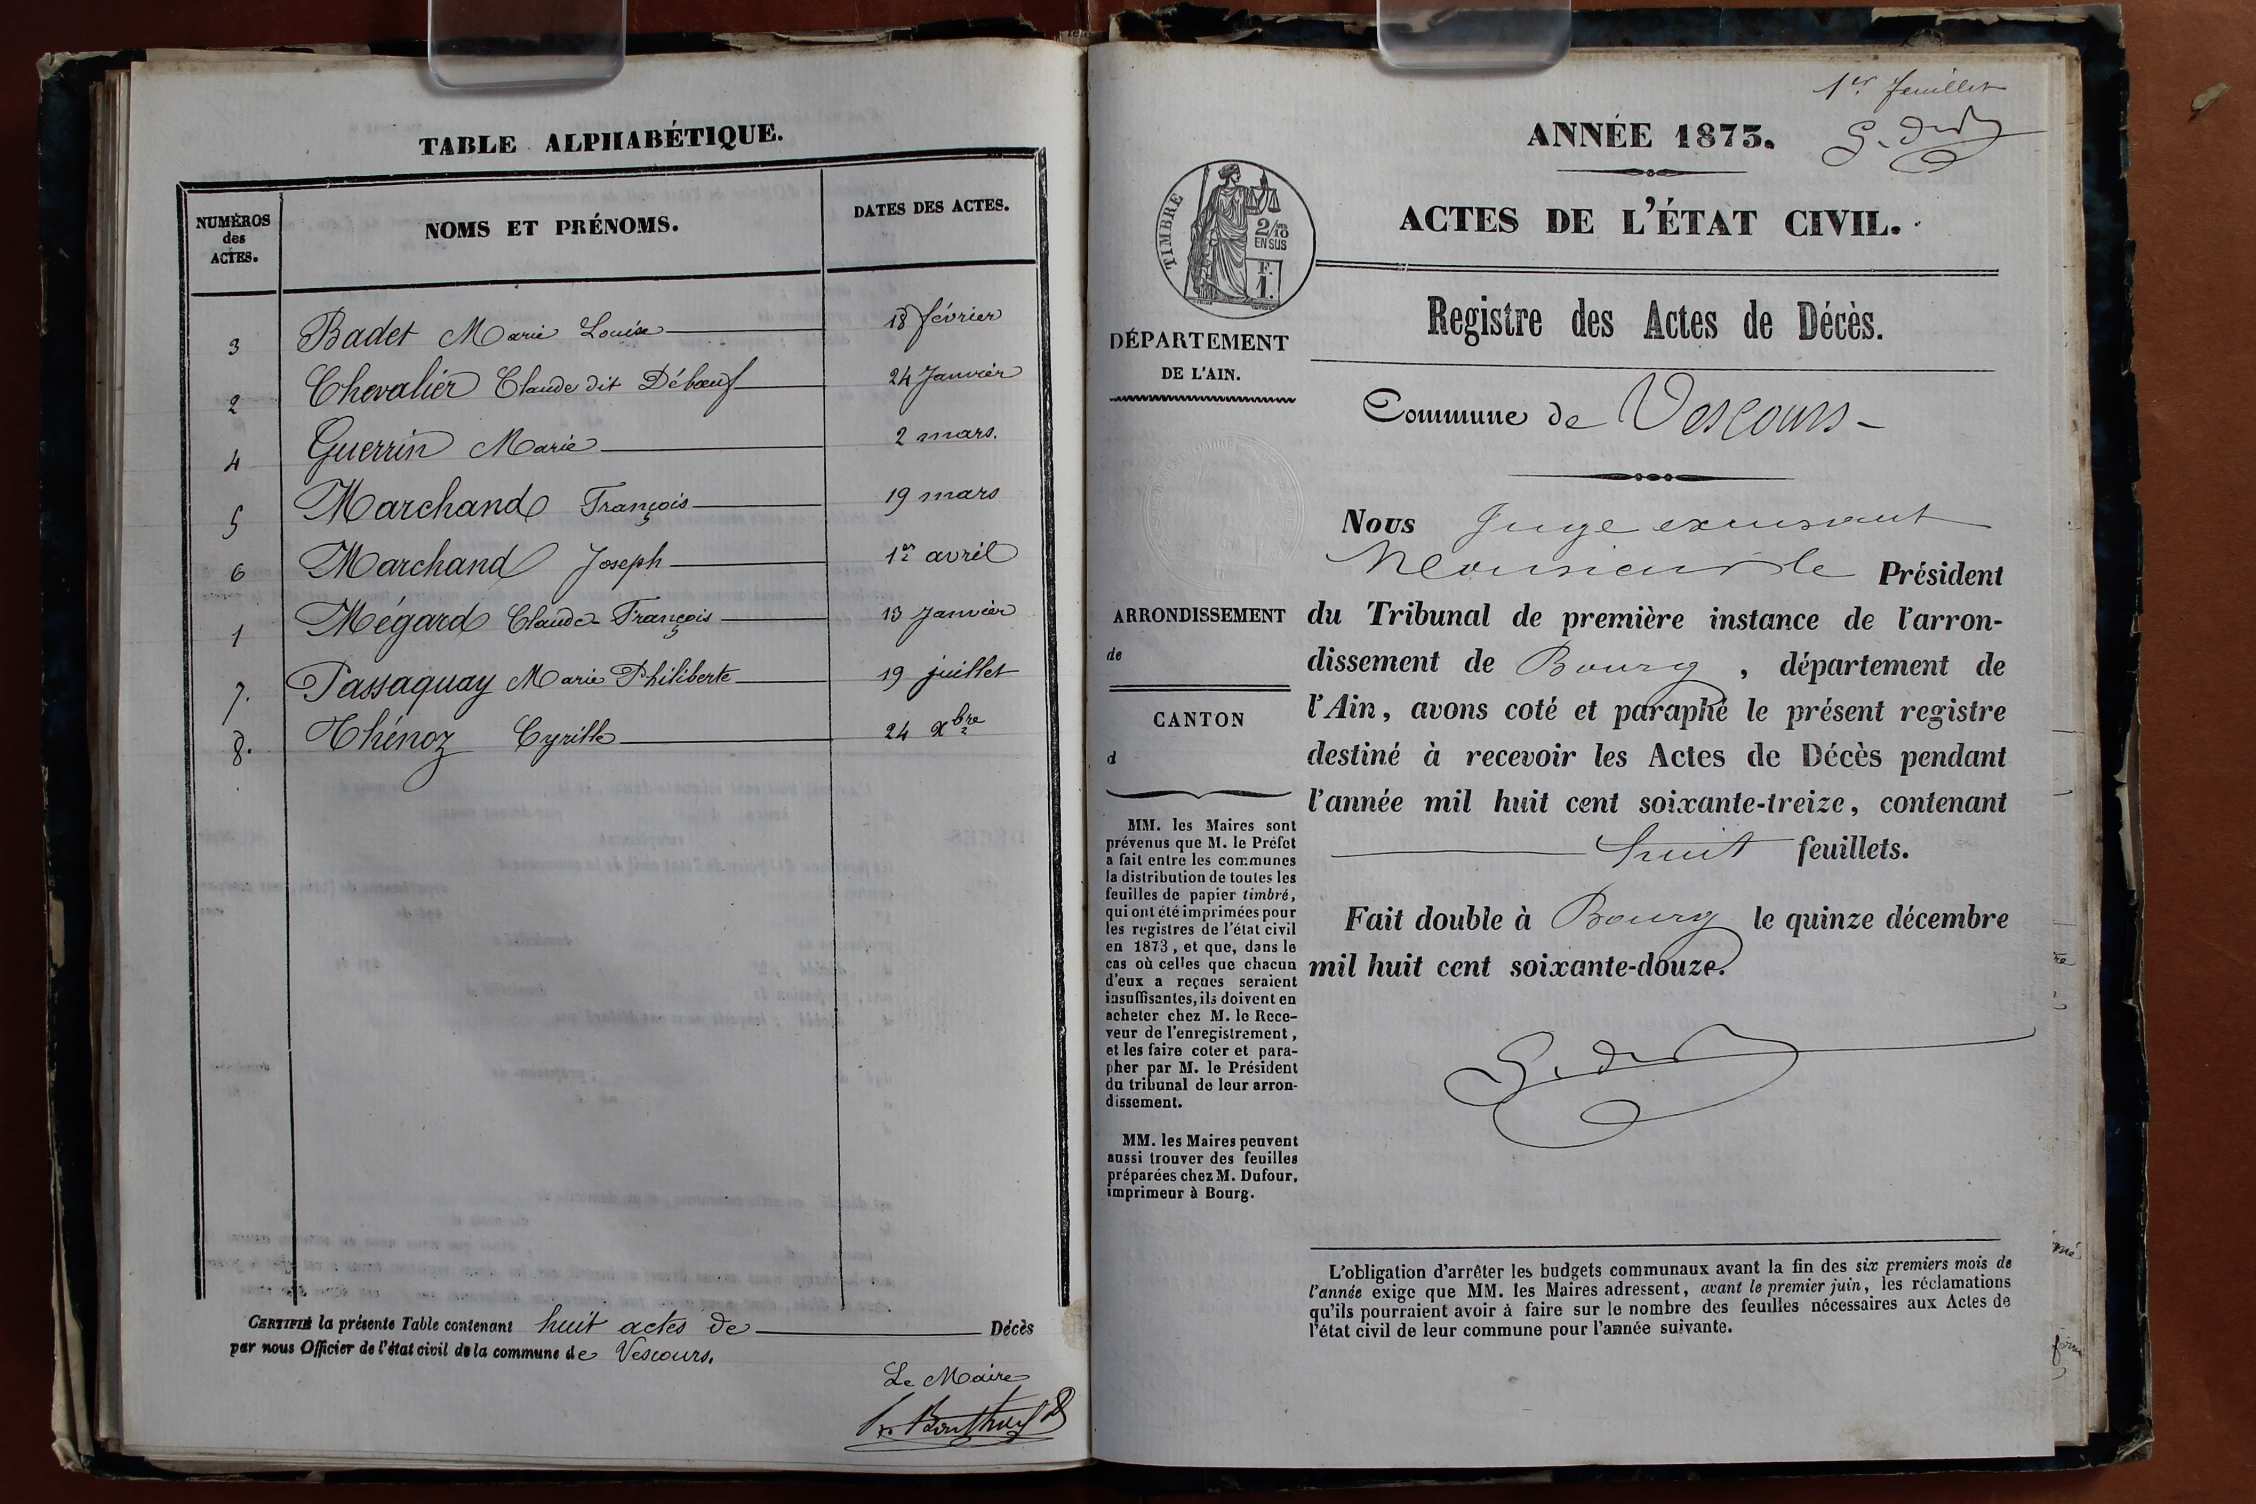 TABLE ALPHABÉTIQUE.
NUMÉROS des ACTES. NOMS ET PRÉNOMS. DATES DES ACTES.
3 Badet Marie Louise 18 février
2 Chevalier Claude dit Débœuf 24 Janvier
4 Guerrin Marie 2 mars.
5 Marchand François 19 mars
6 Marchand Joseph 1er avril
1 Mégard Claude François 13 Janvier
7. Passaquay Marie Philiberte 19 juillet
8. Thénoz Cyrille 24 xbre
CERTIFIÉ la présente Table contenant huit actes de Décès
par nous Officier de l'état civil de la commune de Vescours.
Le Maire
1er feuillet
ANNÉE 1873.
ACTES DE L'ÉTAT CIVIL.
TIMBRE
2/10
EN SUS
F.
1.
Registre des Actes de Décès.
DÉPARTEMENT
DE L'AIN.
Commune de Vescours
Nous Juge excusant
Monsieur le Président
ARRONDISSEMENT
de
CANTON
d
du Tribunal de première instance de l'arron-
dissement de Bourg, département de
l'Ain, avons coté et paraphé le présent registre
destiné à recevoir les Actes de Décès pendant
l'année mil huit cent soixante-treize, contenant
huit feuillets.
Fait double à Bourg le quinze décembre
mil huit cent soixante-douze.
MM. les Maires sont
prévenus que M. le Préfet
a fait entre les communes
la distribution de toutes les
feuilles de papier timbré,
qui ont été imprimées pour
les registres de l'état civil
en 1873, et que, dans le
cas où celles que chacun
d'eux a reçues seraient
insuffisantes, ils doivent en
acheter chez M. le Rece-
veur de l'enregistrement,
et les faire coter et para-
pher par M. le Président
du tribunal de leur arron-
dissement.
MM. les Maires peuvent
aussi trouver des feuilles
préparées chez M. Dufour,
imprimeur à Bourg.
L'obligation d'arrêter les budgets communaux avant la fin des six premiers mois de
l'année exige que MM. les Maires adressent, avant le premier juin, les réclamations
qu'ils pourraient avoir à faire sur le nombre des feuilles nécessaires aux Actes de
l'état civil de leur commune pour l'année suivante.